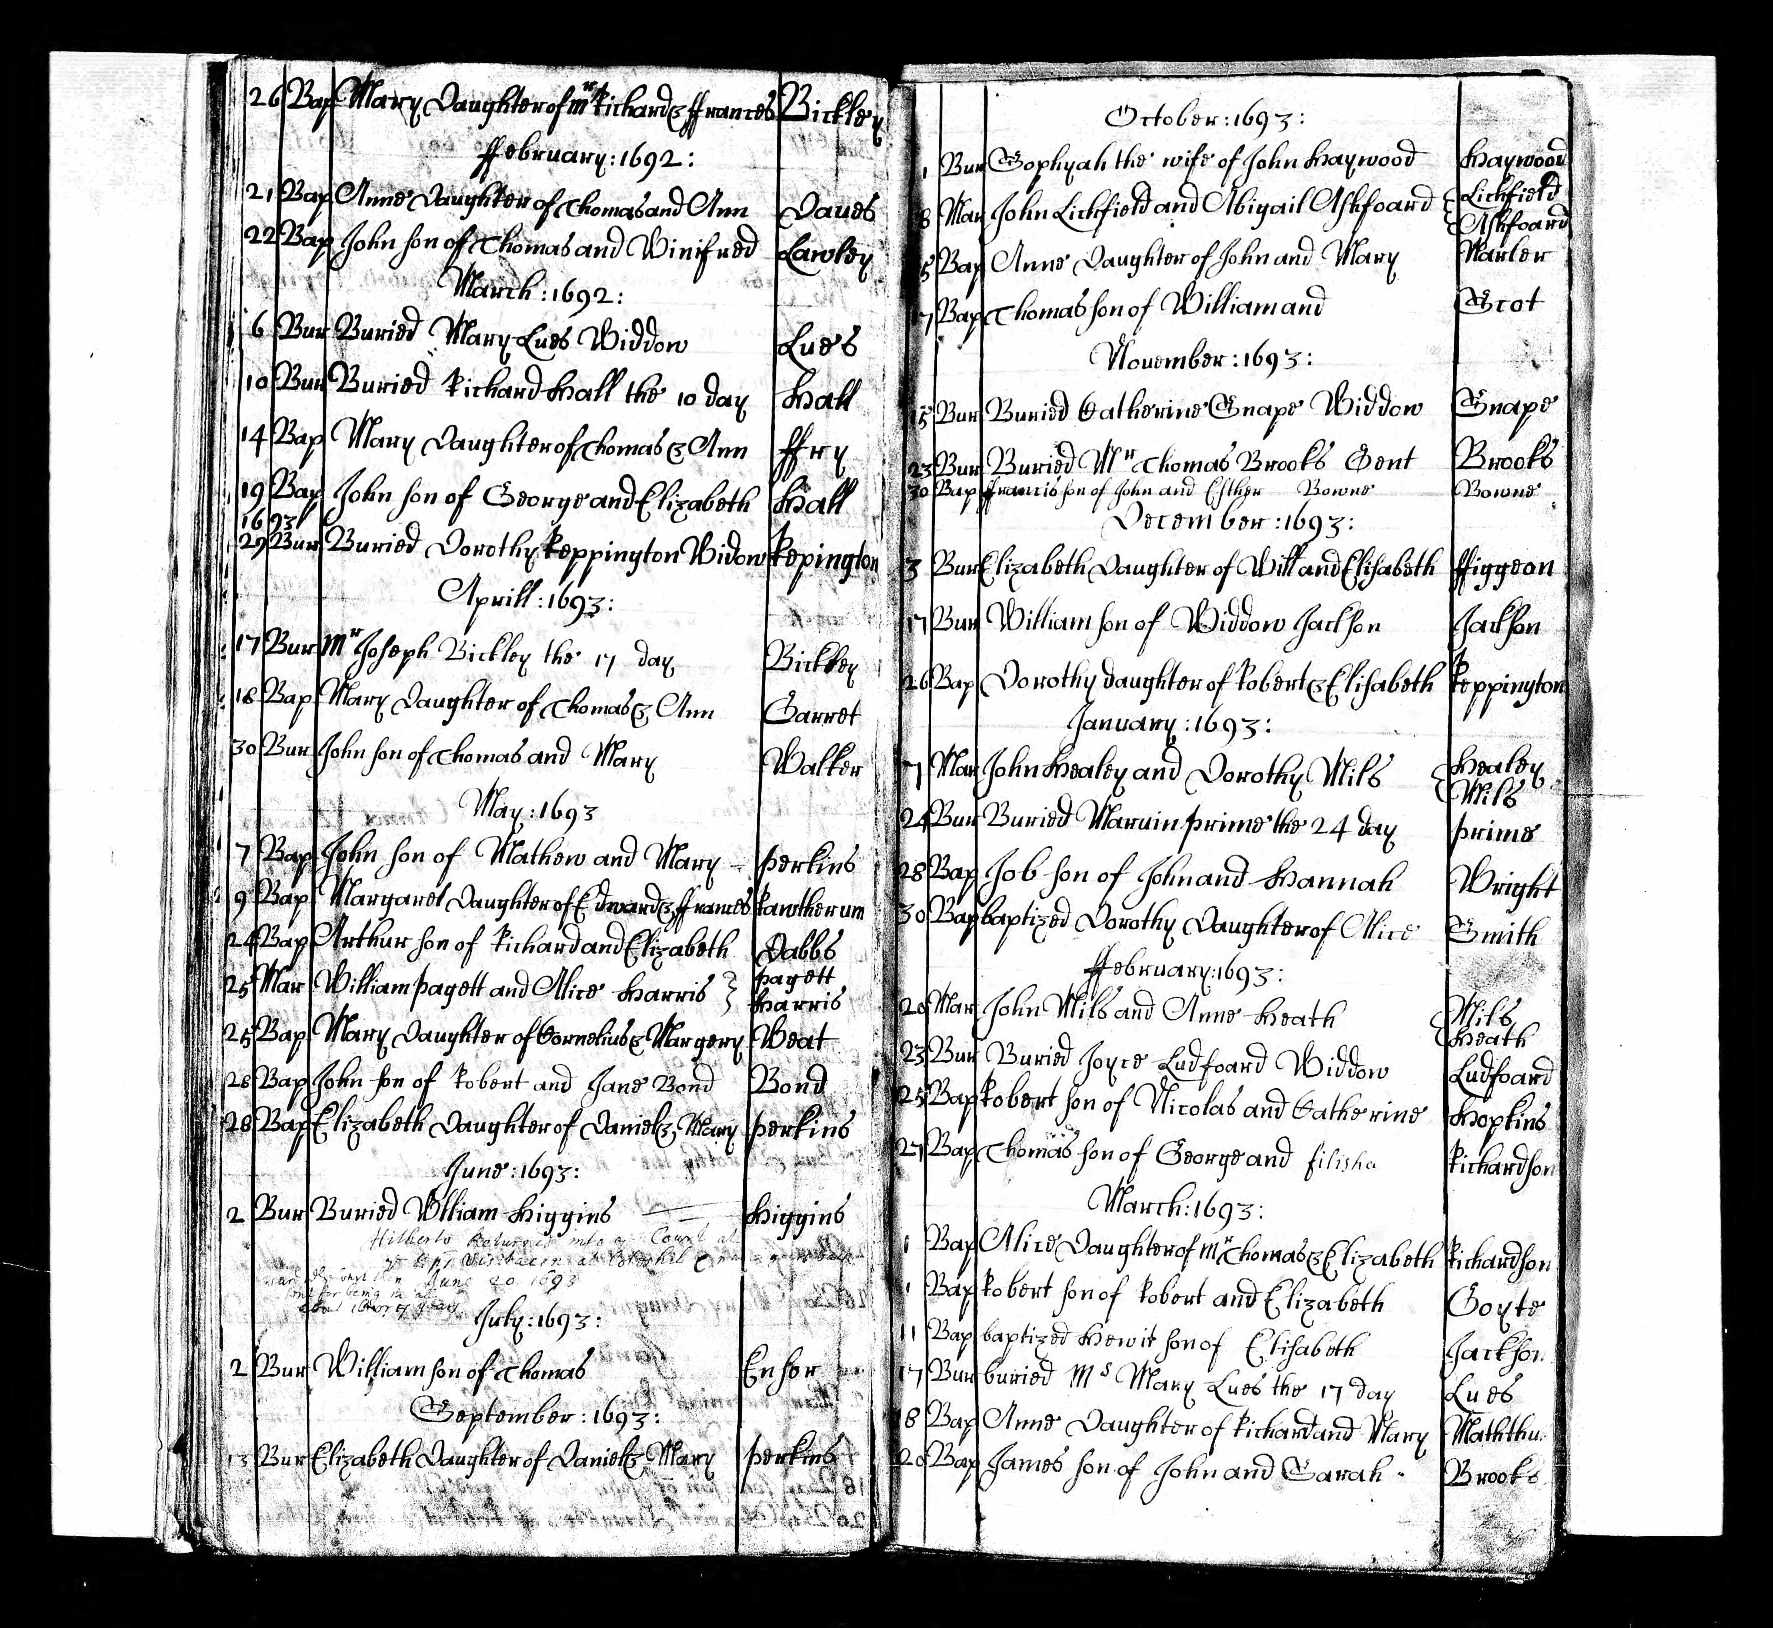 26 Bap Mary Daughter of Mr Richard & ffrances Bickley
ffebruary: 1692:
21 Bap Anne Daughter of Thomas and Ann Daues
22 Bap John son of Thomas and Winifred Lawley
March: 1692:
6 Bur Buried Mary Lues Widdow Lues
10 Bur Buried Richard Hall the 10 day Hall
14 Bap Mary Daughter of Thomas & Ann ffry
19 Bap John son of George and Elizabeth Hall
1693
29 Bur Buried Dorothy Reppington Widow Repington
Aprill: 1693:
17 Bur Mr Joseph Bickley the 17 day Bickley
18 Bap Mary Daughter of Thomas & Ann Garret
30 Bur John son of Thomas and Mary Walker
May: 1693
7 Bap John son of Mathew and Mary perkins
9 Bap Margaret Daughter of Edward & ffrances Rawtherum
24 Bap Arthur son of Richard and Elizabeth Dabbs
25 Mar William pagett and Alice Harris } pagett
Harris
25 Bap Mary Daughter of Cornelius & Margery Weat
28 Bap John son of Robert and Jane Bond Bond
28 Bap Elizabeth Daughter of Daniel & Mary perkins
June: 1693:
2 Bur Buried William Higgins Higgins
Hitherto Returned into Court at
June 20 1693
for being
July: 1693:
2 Bur William son of Thomas Ensor
September: 1693:
13 Bur Elizabeth Daughter of Daniel & Mary perkins
October: 1693:
1 Bur Sophyah the wife of John Haywood Haywood
8 Mar John Lichfield and Abigail Ashfoard { Lichfield
Ashfoard
Bap Anne Daughter of John and Mary Marler
Bap Thomas son of William and Scot
November: 1693:
15 Bur Buried Catherine Snape Widdow Snape
23 Bur Buried Mr Thomas Brooks Gent Brooks
30 Bap ffrancis son of John and Esther Bowne Bowne
December: 1693:
3 Bur Elizabeth Daughter of Will and Elisabeth ffiggeon
17 Bur William son of Widdow Jackson Jackson
26 Bap Dorothy daughter of Robert & Elisabeth Reppington
January: 1693:
7 Mar John Healey and Dorothy Mils { Healey
Mils
24 Bur Buried Maruin prime the 24 day prime
28 Bap Job son of John and Hannah Wright
30 Bap baptized Dorothy Daughter of Alice Smith
ffebruary: 1693:
20 Mar John Mils and Anne Heath { Mils
Heath
23 Bur Buried Joyce Ludfoard Widdow Ludfoard
25 Bap Robert son of Nicolas and Catherine Hopkins
27 Bap Thomas son of George and filisha Richardson
March: 1693:
1 Bap Alice Daughter of Mr Thomas & Elizabeth Richardson
1 Bap Robert son of Robert and Elizabeth Goyte
11 Bap baptized Hewit son of Elisabeth Jackson
17 Bur buried Ms Mary Lues the 17 day Lues
18 Bap Anne Daughter of Richard and Mary
20 Bap James son of John and Sarah Brooks